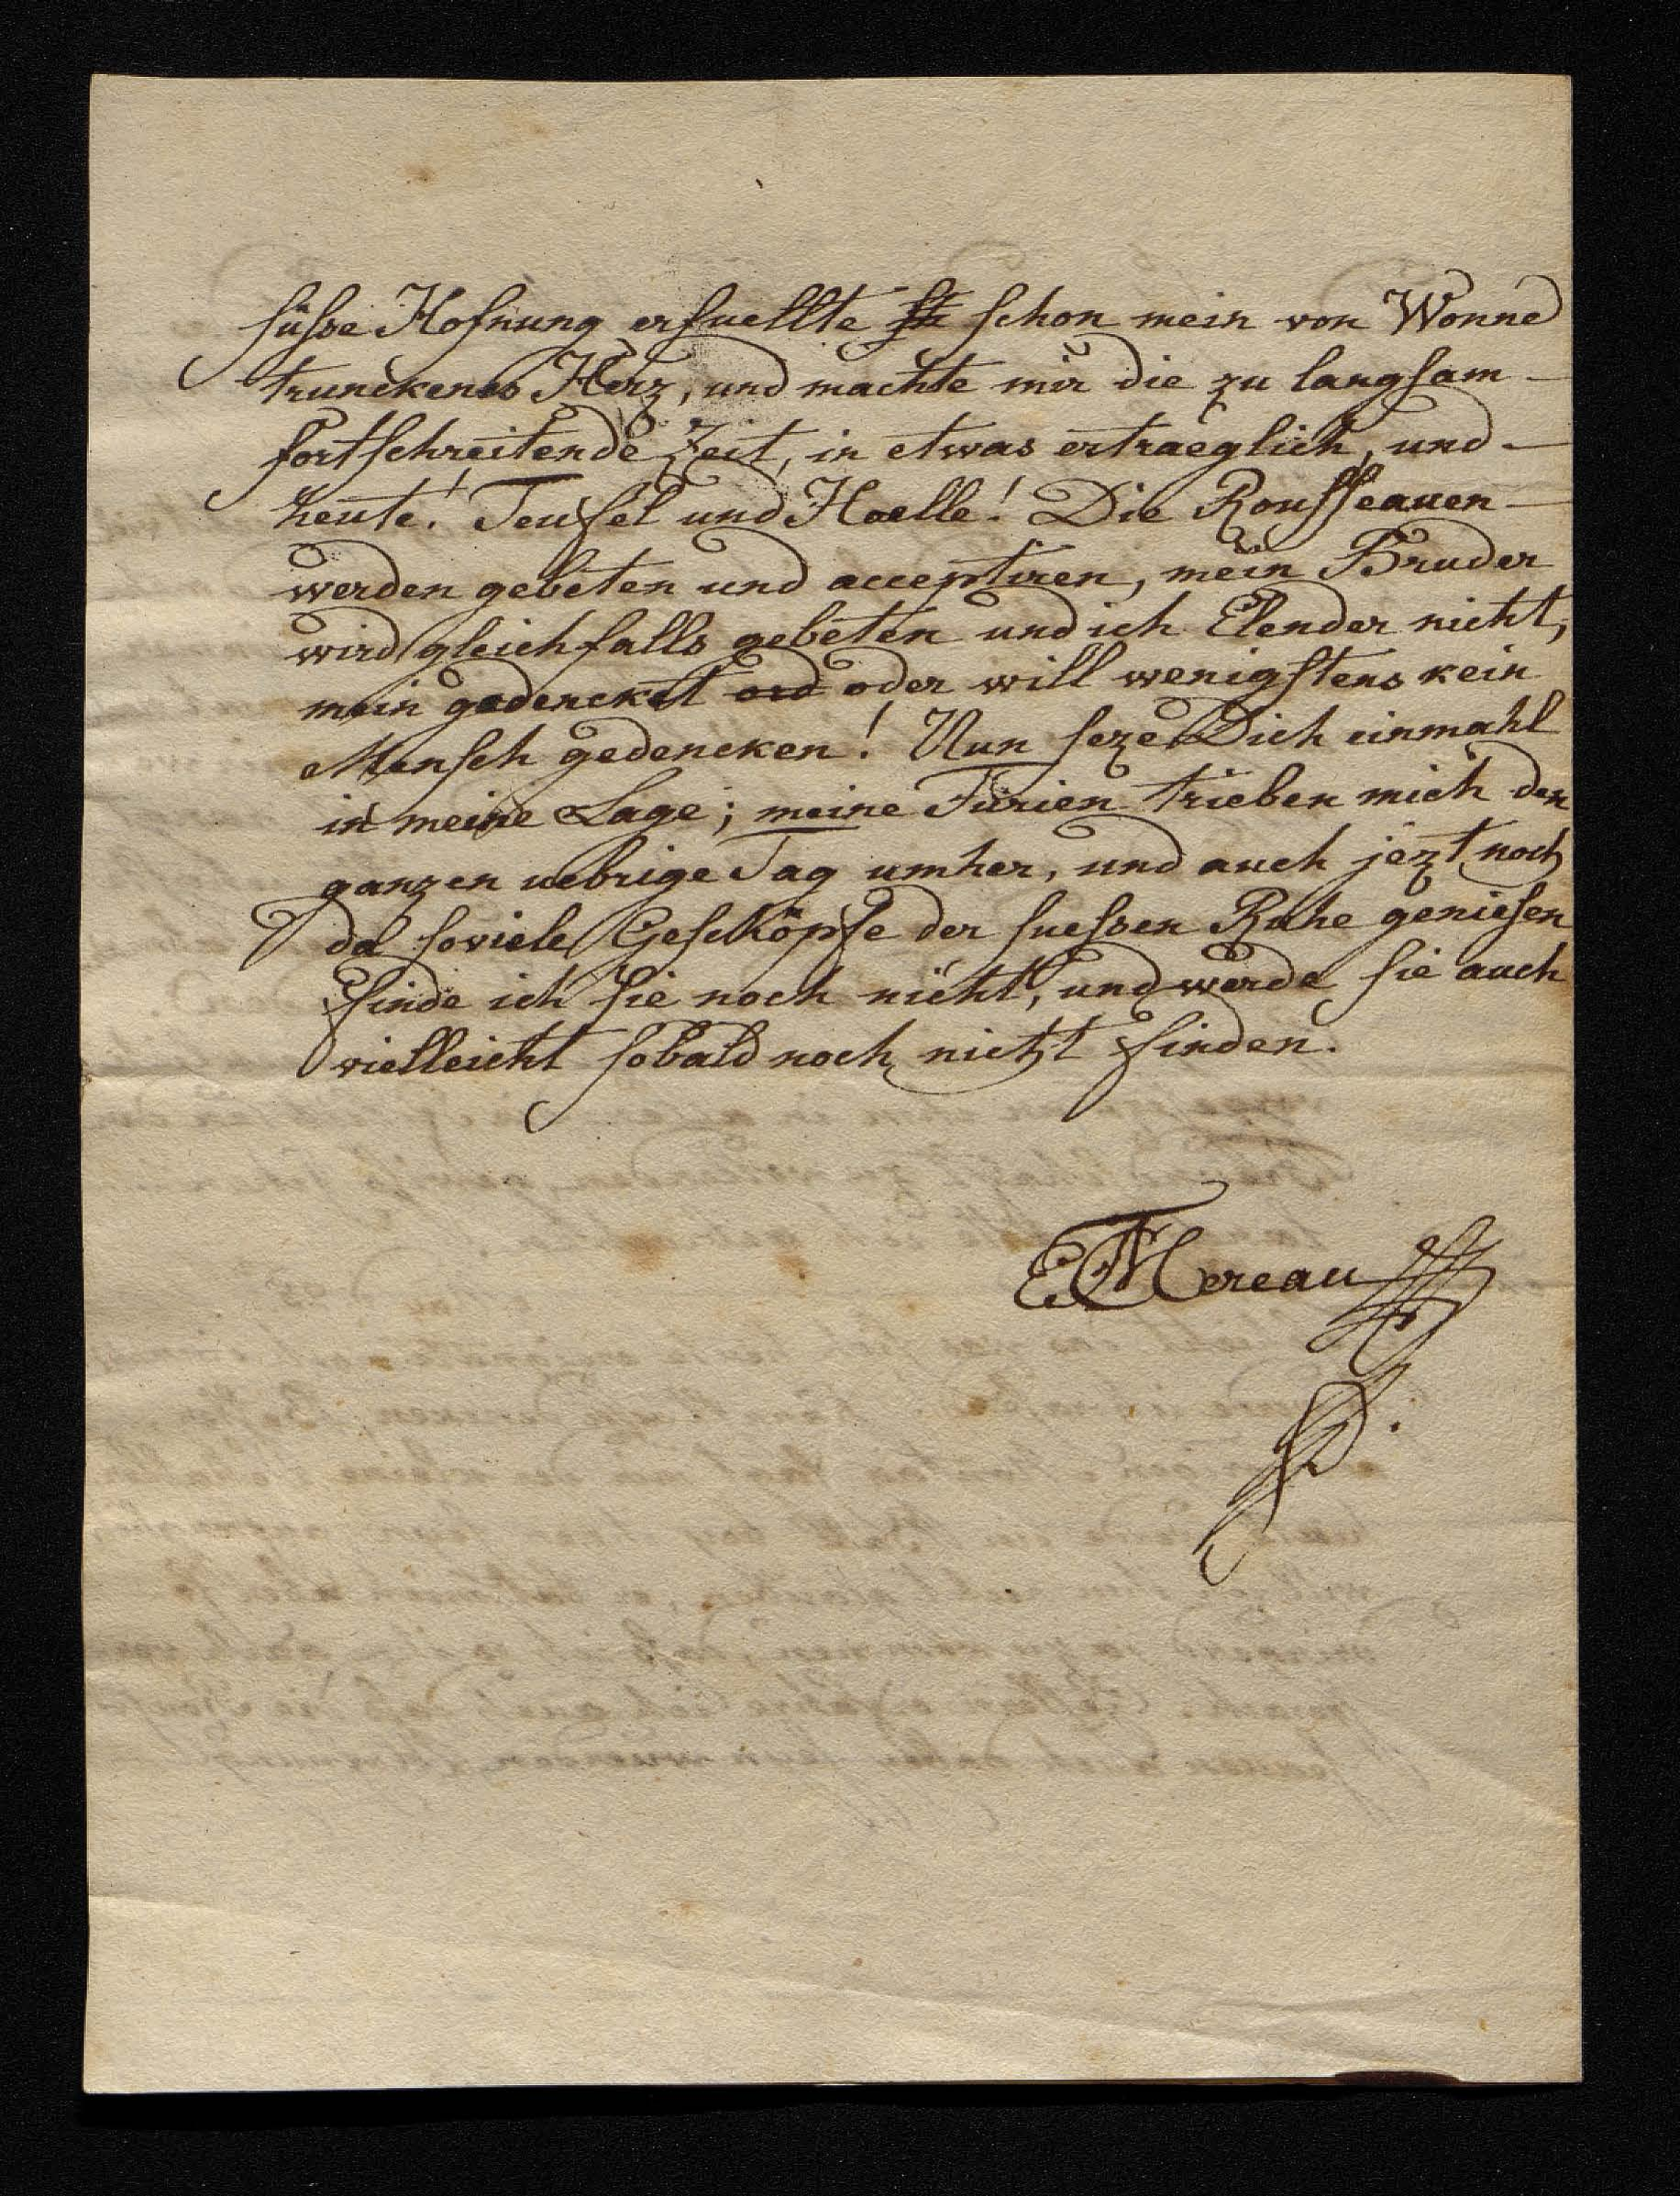 süsse Hofnung erfuellte schon mein von Wonne
trunckenes Herz, und machte mir die zu langsam
fortschreitende Zeit, in etwas ertraeglich, und
heute! Teufel und Hoelle! Die Rousseauen
werden gebeten und acceptiren, mein Bruder
wird gleichfalls gebeten und ich Elender nicht,
mein gedencket ord oder will wenigstens kein
Mensch gedencken! Nun seze Dich einmahl
in meine Lage; meine Furien trieben mich den
ganzen uebrige Tag umher, und auch jezt noch
da soviele Geschöpfe der suessen Ruhe geniesen
finde ich sie noch nicht, und werde sie auch
vielleicht sobald noch nicht finden.
Mereau